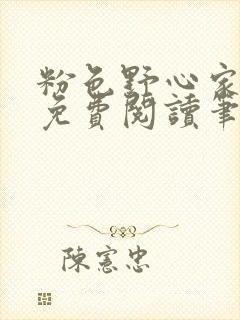 粉色野心家
免費閱讀筆
陳憲忠